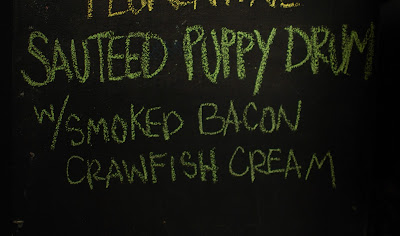 SAUTEED PUPPY DRUM
W/SMOKED BACON
CRAWFISH CREAM